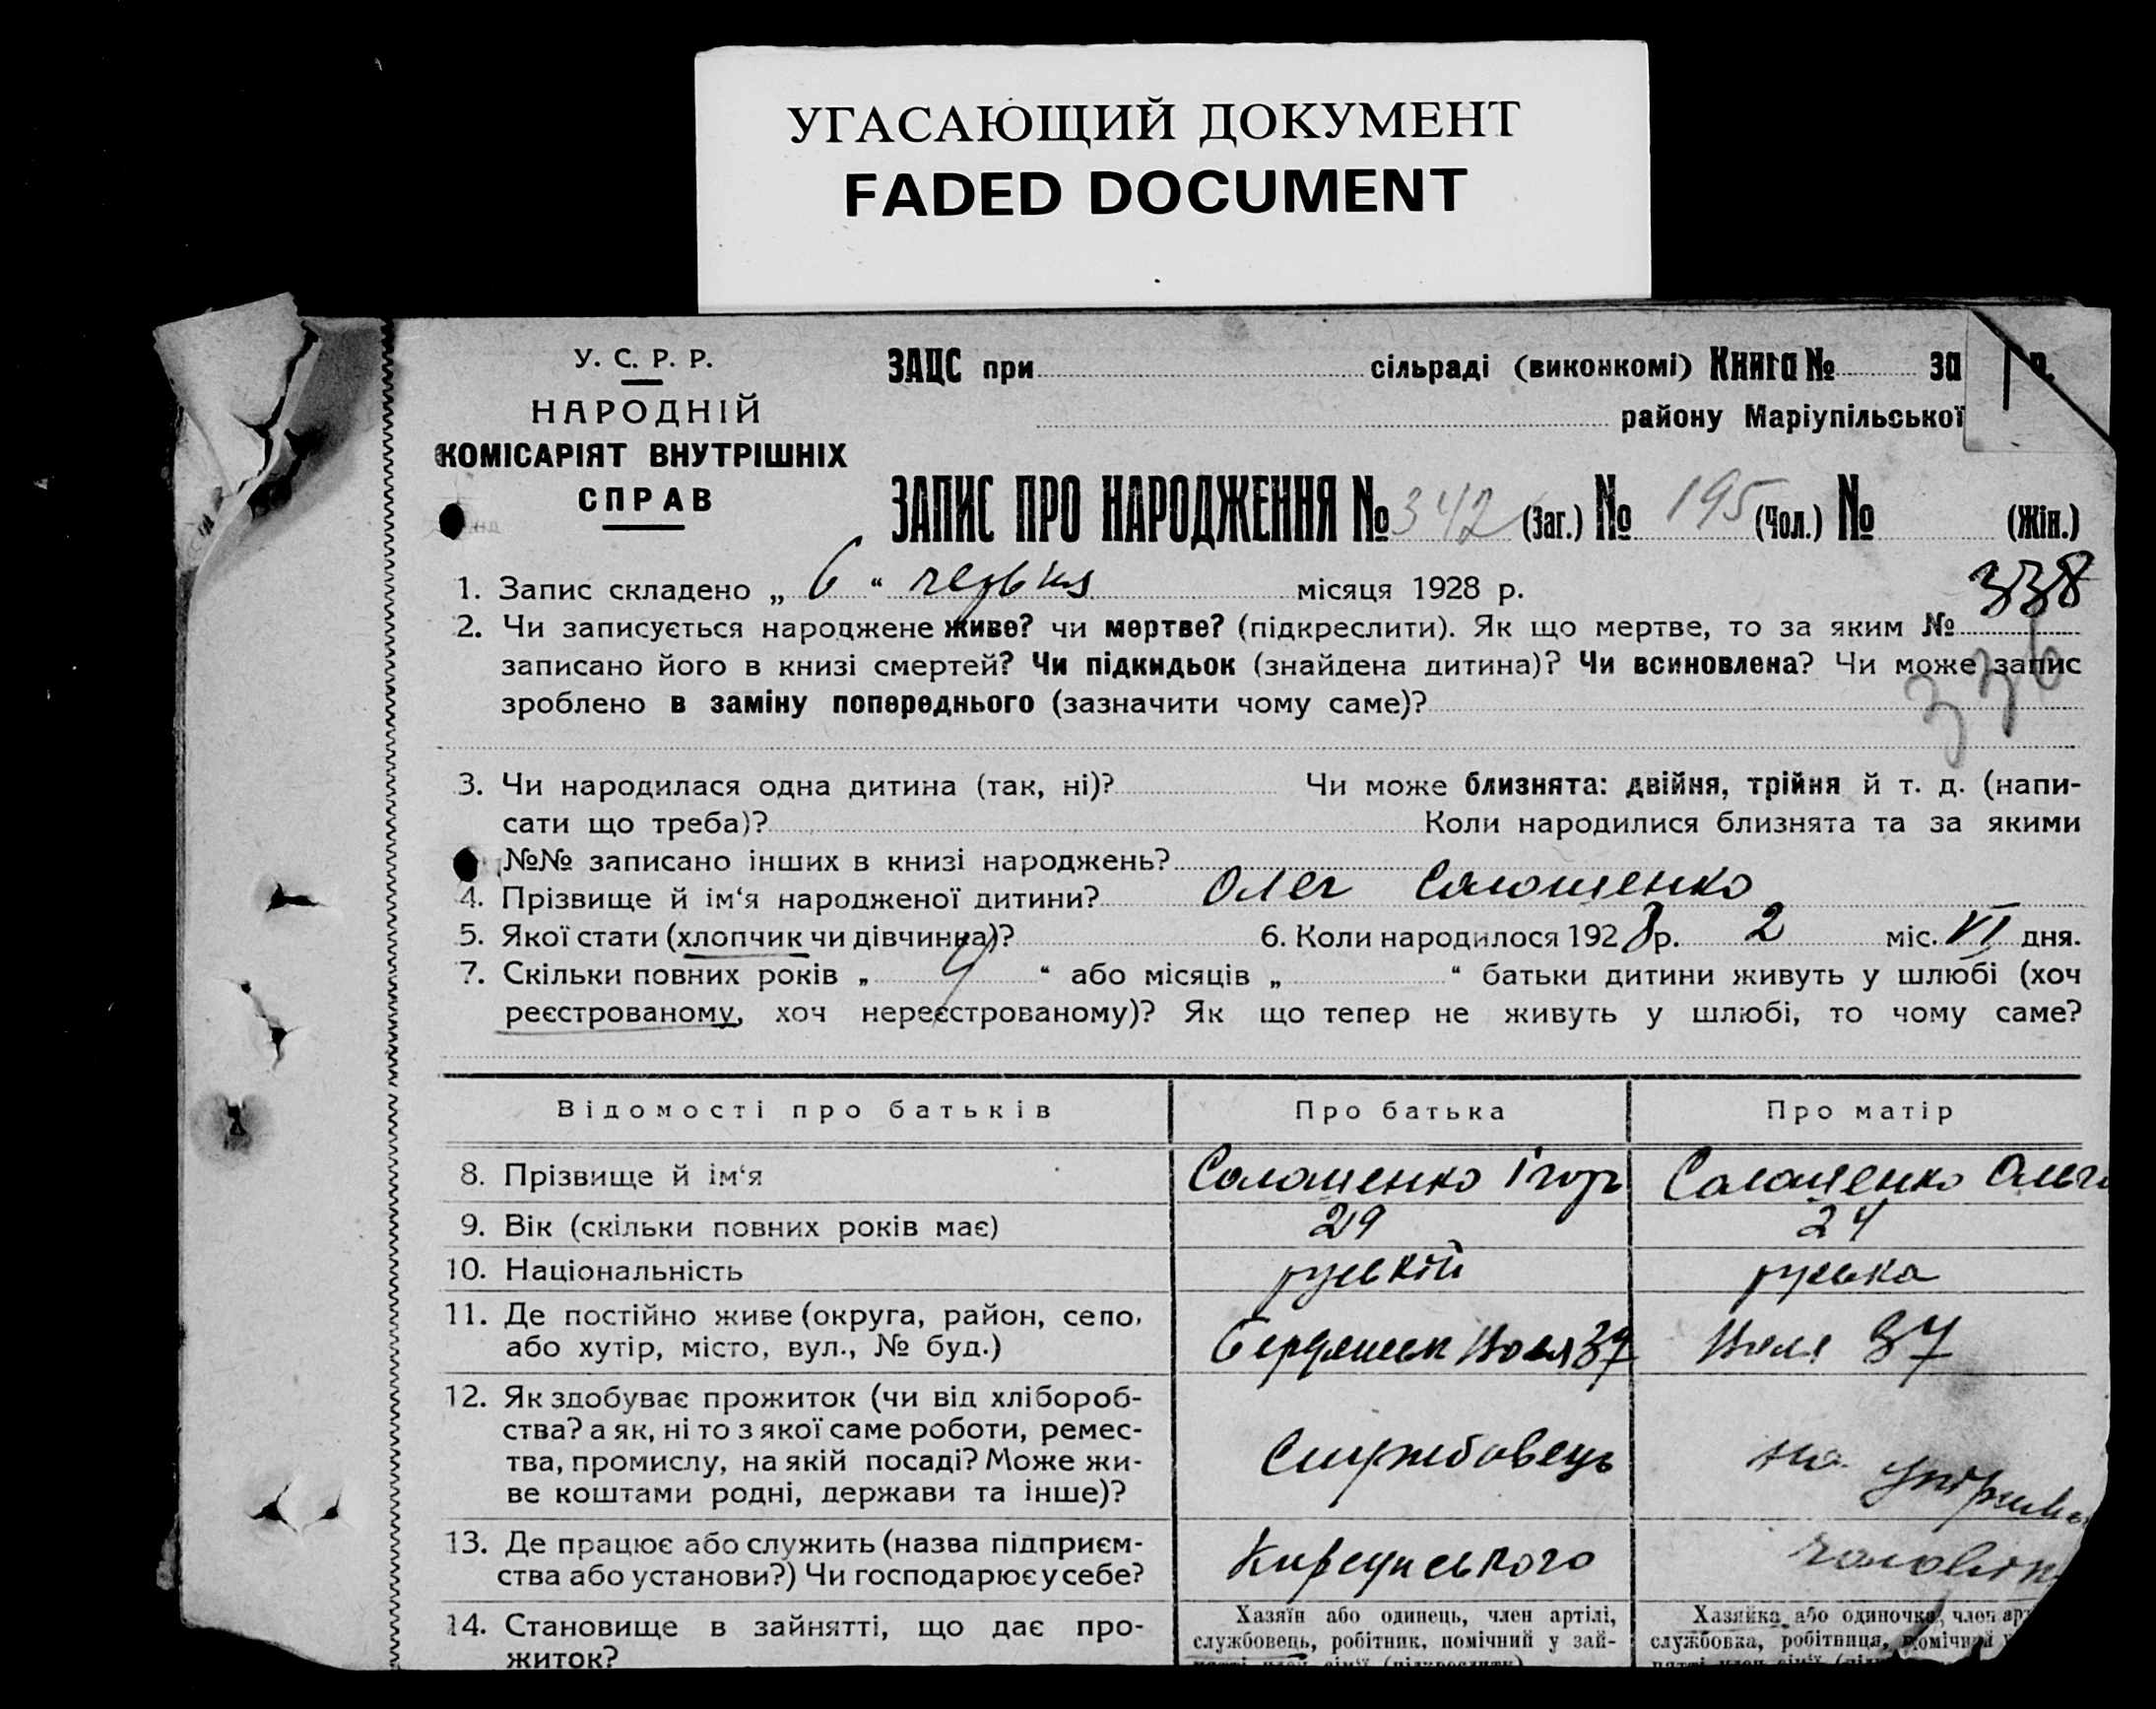 УГАСАЮЩИЙ ДОКУМЕНТ
FADED DOCUMENT
У. С. Р. Р.
НАРОДНІЙ
КОМІСАРІЯТ ВНУТРІШНІХ
СПРАВ
ЗАЦС при сільраді (виконкомі) Книга № за р.
району Маріупільської
ЗАПИС ПРО НАРОДЖЕННЯ № 342 (Заг.) № 195 (Чол.) № (Жін.)
1. Запис складено „ 6 “ червня місяця 1928 р.
338
2. Чи записується народжене живе? чи мертве? (підкреслити). Як що мертве, то за яким №
записано його в книзі смертей? Чи підкидьок (знайдена дитина)? Чи всиновлена? Чи може запис
зроблено в заміну попереднього (зазначити чому саме)?
336
3. Чи народилася одна дитина (так, ні)? Чи може близнята: двійня, трійня й т. д. (напи-
сати що треба)? Коли народилися близнята та за якими
№№ записано інших в книзі народжень?
4. Прізвище й ім‘я народженої дитини? Олег Солошенко
5. Якої стати (хлопчик чи дівчинка)? 6. Коли народилося 1928 р. 2 міс. VI дня.
7. Скільки повних років „ 4 “ або місяців „ “ батьки дитини живуть у шлюбі (хоч
реєстрованому, хоч нереєстрованому)? Як що тепер не живуть у шлюбі, то чому саме?
Відомості про батьків Про батька Про матір
8. Прізвище й ім‘я Солошенко Ігор Солошенко Ольга
9. Вік (скільки повних років має) 29 24
10. Національність руській руська
11. Де постійно живе (округа, район, село,
або хутір, місто, вул., № буд.) 37 37
12. Як здобуває прожиток (чи від хлібороб-
ства? а як, ні то з якої саме роботи, ремес-
тва, промислу, на якій посаді? Може жи-
ве коштами родні, держави та інше)?
Службовець на
13. Де працює або служить (назва підприєм-
ства або установи?) Чи господарює у себе?
14. Становище в зайнятті, що дає про-
житок?
Хазяїн або одинець, член артілі,
службовець, робітник, помічний у зай-
Хазяйка або одиночка, член арт
службовка, робітниця, помічний у